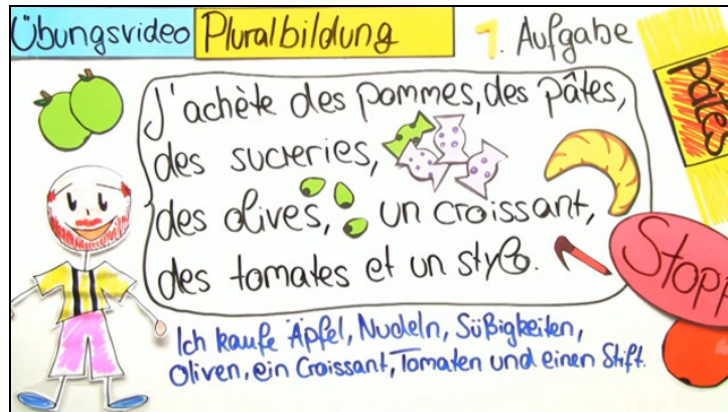 Übungsvideo Pluralbildung 1. Aufgabe
J'achète des pommes, des pâtes,
des sucreries,
des olives, un croissant,
des tomates et un stylo.
Ich kaufe Äpfel, Nudeln, Süßigkeiten,
Oliven, ein Croissant, Tomaten und einen Stift.
Pâtes
Stopp